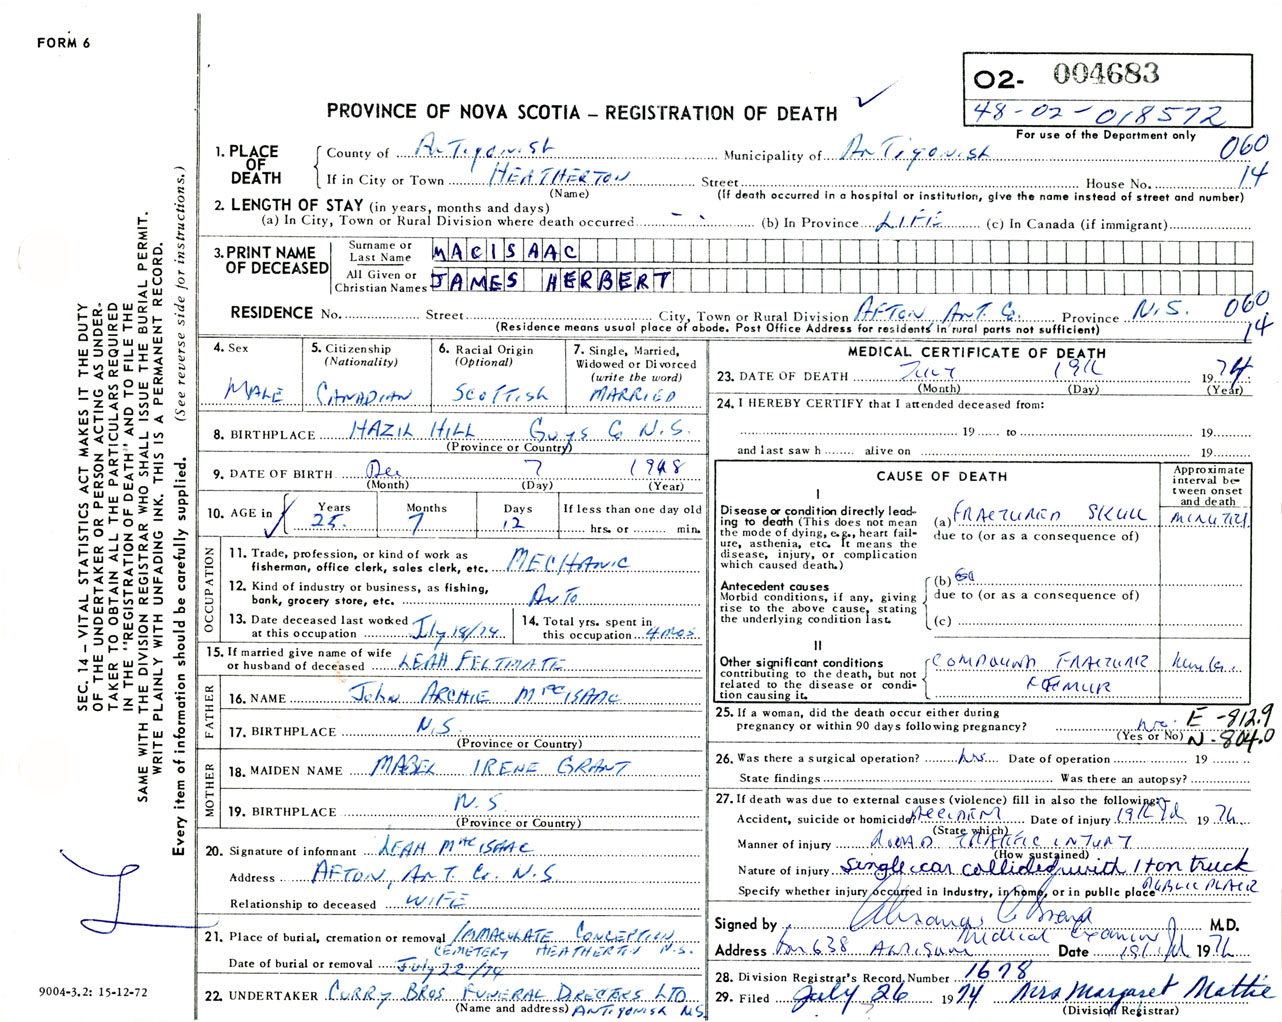 FORM 6
O2- 004683
48-02-018572
For use of the Department only
PROVINCE OF NOVA SCOTIA – REGISTRATION OF DEATH
1. PLACE OF DEATH
County of Antigonish Municipality of Antigonish 060
If in City or Town HEATHERTON Street House No. 14
(Name) (If death occurred in a hospital or institution, give the name instead of street and number)
2. LENGTH OF STAY (in years, months and days)
(a) In City, Town or Rural Division where death occurred - - (b) In Province LIFE (c) In Canada (if immigrant)
3. PRINT NAME OF DECEASED
Surname or Last Name MACISAAC
All Given or Christian Names JAMES HERBERT
RESIDENCE No. Street City, Town or Rural Division AFTON ANT. Co. Province N.S. 060
(Residence means usual place of abode. Post Office Address for residents in rural parts not sufficient) 14
4. Sex
MALE
5. Citizenship
(Nationality)
CANADIAN
6. Racial Origin
(Optional)
SCOTTISH
7. Single, Married, Widowed or Divorced
(write the word)
MARRIED
8. BIRTHPLACE HAZIL HILL Guys Co N.S.
(Province or Country)
9. DATE OF BIRTH Dec 7 1948
(Month) (Day) (Year)
10. AGE in
Years Months Days If less than one day old
25 7 12 hrs. or min.
OCCUPATION
11. Trade, profession, or kind of work as
fisherman, office clerk, sales clerk, etc. MECHANIC
12. Kind of industry or business, as fishing,
bank, grocery store, etc. AUTO
13. Date deceased last worked
at this occupation July 18/74
14. Total yrs. spent in
this occupation 4 mos.
15. If married give name of wife
or husband of deceased LEAH FELTMATE
FATHER
16. NAME John ARCHIE MacISAAC
17. BIRTHPLACE N.S.
(Province or Country)
MOTHER
18. MAIDEN NAME MABEL IRENE GRANT
19. BIRTHPLACE N.S.
(Province or Country)
20. Signature of informant LEAH MacISAAC
Address AFTON, ANT. Co. N.S
Relationship to deceased WIFE
21. Place of burial, cremation or removal IMMACULATE CONCEPTION
CEMETERY HEATHERTON N.S.
Date of burial or removal July 22/74
22. UNDERTAKER CURRY BROS FUNERAL DIRECTORS LTD
(Name and address) ANTIGONISH N.S
MEDICAL CERTIFICATE OF DEATH
23. DATE OF DEATH JULY 19th 1974
(Month) (Day) (Year)
24. I HEREBY CERTIFY that I attended deceased from:
19 to 19
and last saw h alive on 19
CAUSE OF DEATH
Approximate interval between onset and death
I
Disease or condition directly leading to death (This does not mean
the mode of dying, e.g., heart failure, asthenia, etc. It means the
disease, injury, or complication
which caused death.)
(a) FRACTURED SKULL MINUTES
due to (or as a consequence of)
Antecedent causes
Morbid conditions, if any, giving
rise to the above cause, stating
the underlying condition last.
(b)
due to (or as a consequence of)
(c)
II
Other significant conditions
contributing to the death, but not
related to the disease or condition causing it.
COMPOUND FRACTURE
FEMUR
25. If a woman, did the death occur either during
pregnancy or within 90 days following pregnancy? no. E-812.9
(Yes or No) N-804.0
26. Was there a surgical operation? No Date of operation 19
State findings Was there an autopsy?
27. If death was due to external causes (violence) fill in also the following:
Accident, suicide or homicide ACCIDENT Date of injury 19th Jul 1974
(State which)
Manner of injury ROAD TRAFFIC INJURY
(How sustained)
Nature of injury single car collided with 1 ton truck
Specify whether injury occurred in Industry, in home, or in public place PUBLIC PLACE
Signed by M.D.
Medical Examiner
Address Box 638 Antigonish Date 19th Jul 1974
28. Division Registrar's Record Number 1678
29. Filed July 26 1974 Mrs Margaret Mattie
(Division Registrar)
SEC. 14 – VITAL STATISTICS ACT MAKES IT THE DUTY
OF THE UNDERTAKER OR PERSON ACTING AS UNDERTAKER TO OBTAIN ALL THE PARTICULARS REQUIRED
IN THE "REGISTRATION OF DEATH" AND TO FILE THE
SAME WITH THE DIVISION REGISTRAR WHO SHALL ISSUE THE BURIAL PERMIT.
WRITE PLAINLY WITH UNFADING INK. THIS IS A PERMANENT RECORD.
Every item of information should be carefully supplied. (See reverse side for instructions.)
9004-3.2: 15-12-72